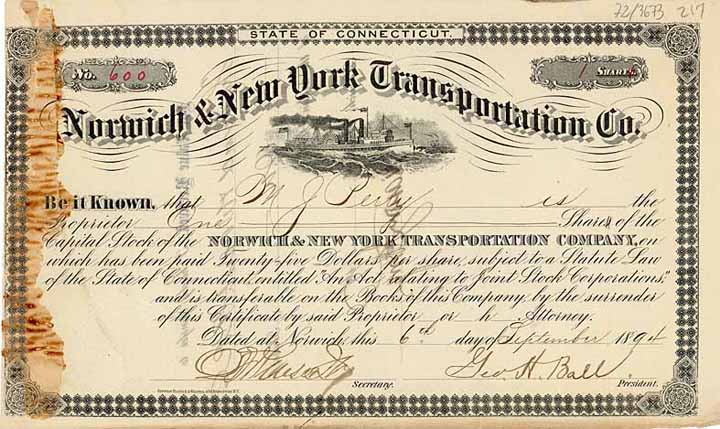 72/7673 217
STATE OF CONNECTICUT.
No. 600
1 Shares
Norwich & New York Transportation Co.
Be it Known, that M J Perry is the
Proprietor One Shares of the
Capital Stock of the NORWICH & NEW YORK TRANSPORTATION COMPANY, on
which has been paid Twenty-five Dollars per share, subject to a Statute Law
of the State of Connecticut, entitled "An Act, relating to Joint Stock Corporations,"
and is transferable on the Books of this Company, by the surrender
of this Certificate by said Proprietor or h Attorney.
Dated at Norwich, this 6th day of September 1894
Geo. H. Ball
Secretary. President.